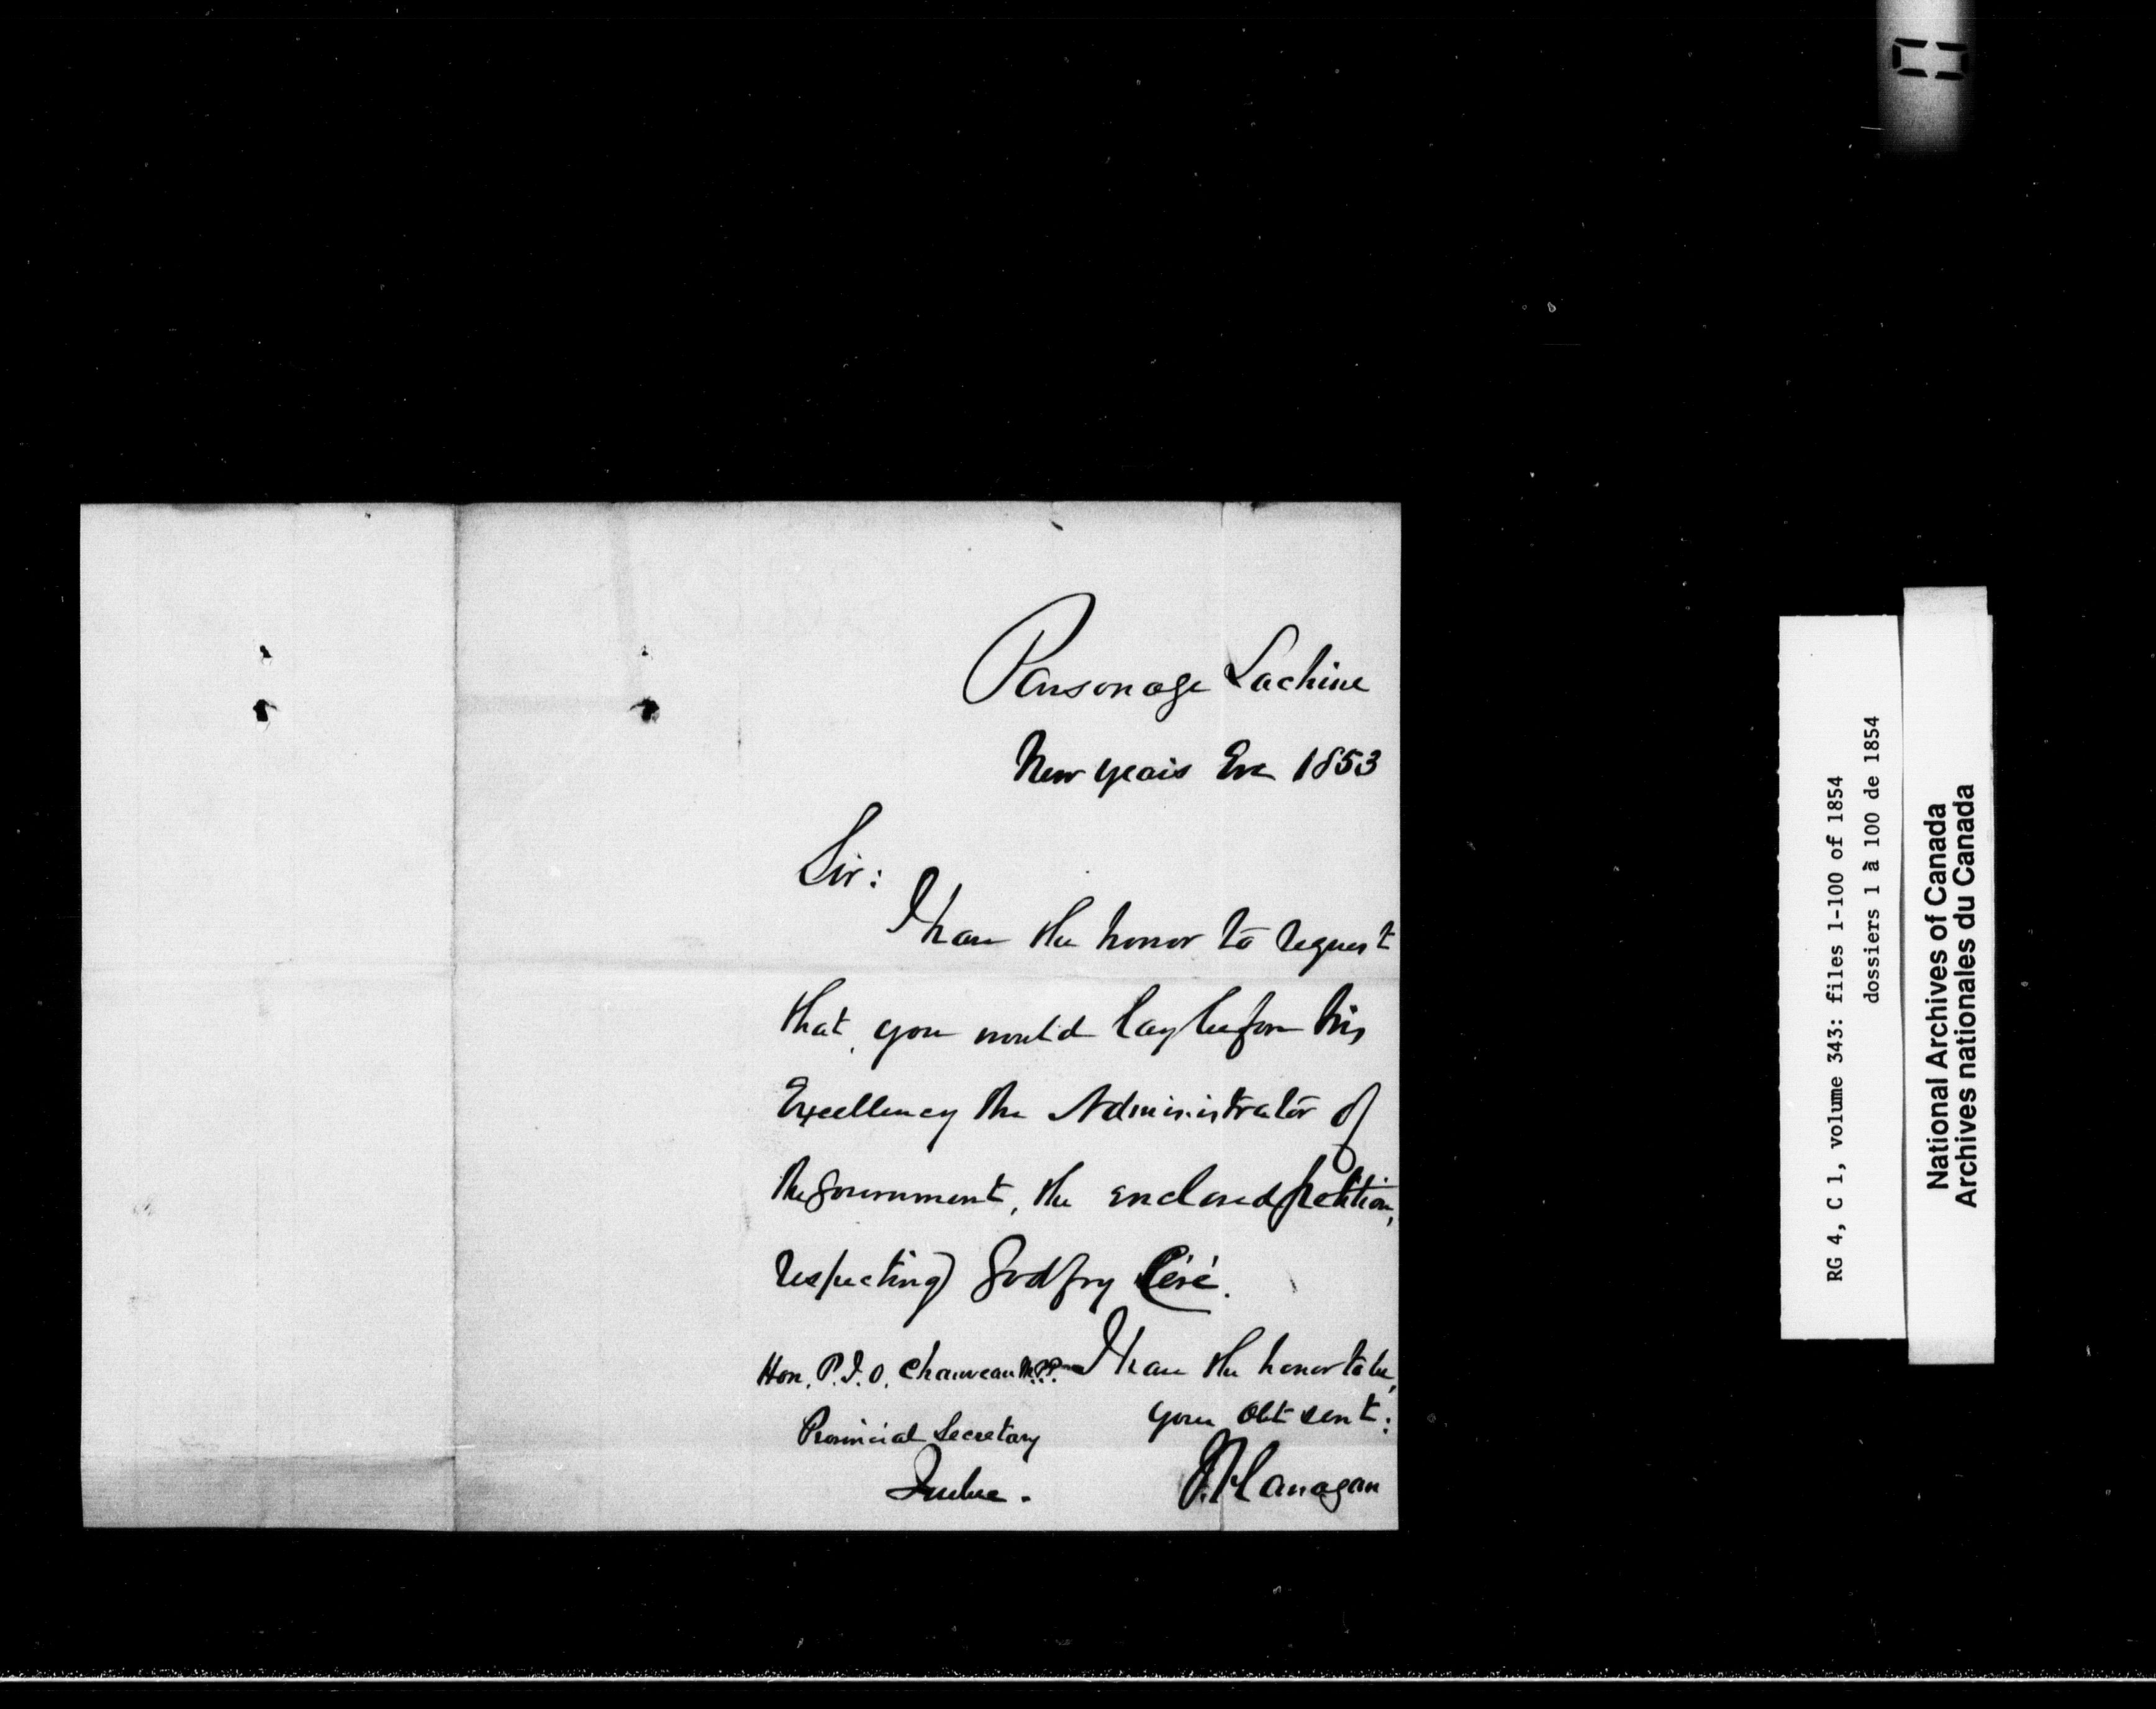 Parsonage Lachine
New years Eve 1853
Sir:
I have the honor to request
that you would lay before his
Excellency the Administrator of
the Government, the enclosed petition,
respecting Godfry Céré.
Hon. P.J.O. Chauveau M.P.P.
I have the honor to be,
your Obt servt:
Provincial Secretary
Quebec.
J. Flanagan
RG 4, C 1, volume 343: files 1-100 of 1854
dossiers 1 à 100 de 1854
National Archives of Canada
Archives nationales du Canada